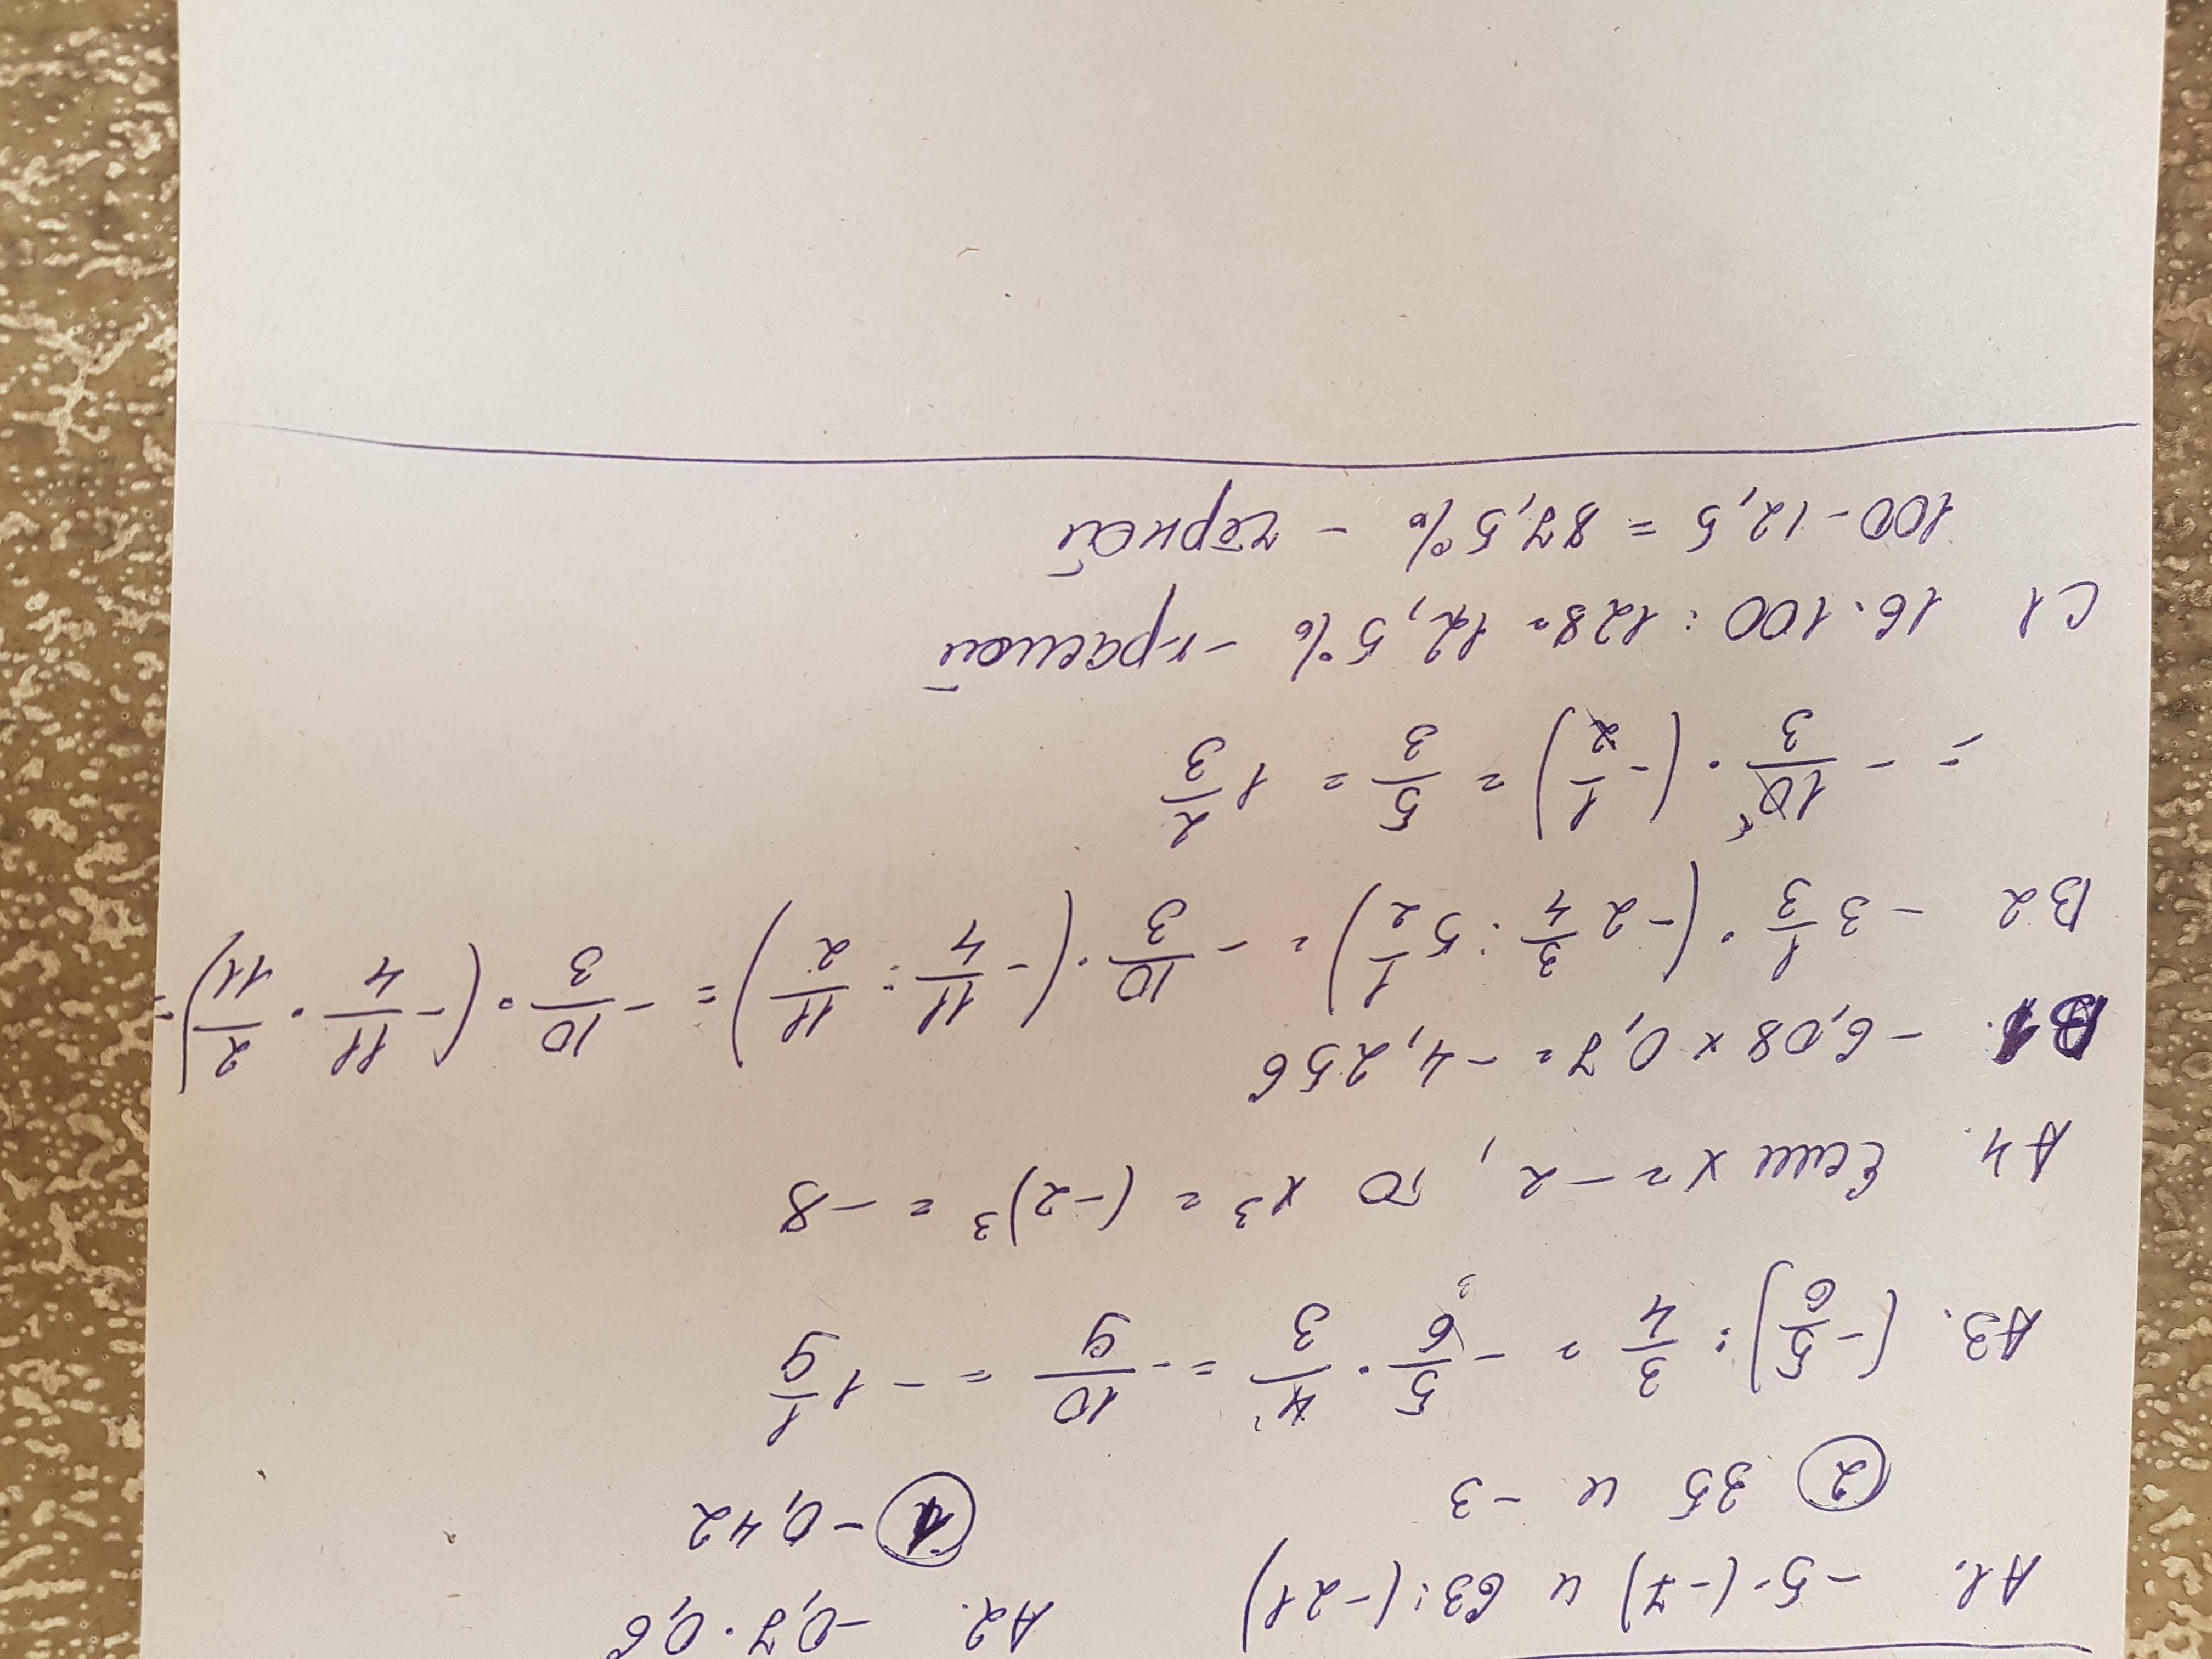 A1. -5·(-7) и 63:(-21) A2. -0,7·0,6
② 35 и -3 ① -0,42
A3. (-5/6) : 3/4 = -5/6 · 4/3 = -10/9 = -1 1/9
A4. Если x = -2, то x³ = (-2)³ = -8
B1. -6,08 × 0,7 = -4,256
B2 -3 1/3 · (-2 3/4 : 5 1/2) = -10/3 · (-11/4 : 11/2) = -10/3 · (-11/4 · 2/11) =
= -10/3 · (-1/2) = 5/3 = 1 2/3
C1 16·100 : 128 = 12,5% - красной
100 - 12,5 = 87,5% - чёрной